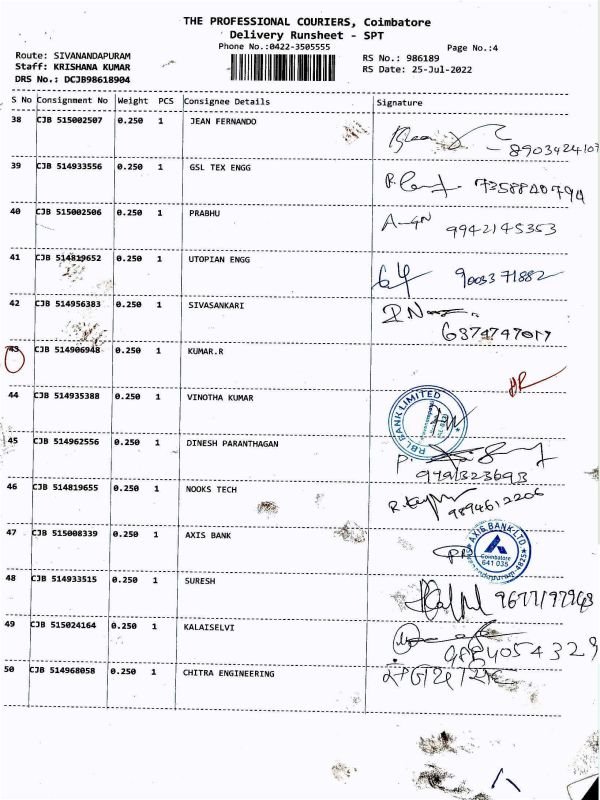 THE PROFESSIONAL COURIERS, Coimbatore
Delivery Runsheet - SPT
Phone No.:0422-3505555
Page No.:4
Route: SIVANANDAPURAM
RS No.: 986189
Staff: KRISHANA KUMAR
RS Date: 25-Jul-2022
DRS No.: DCJB98618904
S No Consignment No Weight PCS Consignee Details Signature
38 CJB 515002507 0.250 1 JEAN FERNANDO
39 CJB 514933556 0.250 1 GSL TEX ENGG
40 CJB 515002506 0.250 1 PRABHU 9942145353
41 CJB 514819652 0.250 1 UTOPIAN ENGG 9003371882
42 CJB 514956383 0.250 1 SIVASANKARI
6374747017
43 CJB 514906948 0.250 1 KUMAR.R
44 CJB 514935388 0.250 1 VINOTHA KUMAR RBL BANK LIMITED
45 CJB 514962556 0.250 1 DINESH PARANTHAGAN
9791323693
46 CJB 514819655 0.250 1 NOOKS TECH 9894612206
47 CJB 515008339 0.250 1 AXIS BANK AXIS BANK LTD
Coimbatore
641 035
48 CJB 514933515 0.250 1 SURESH
49 CJB 515024164 0.250 1 KALAISELVI
50 CJB 514968058 0.250 1 CHITRA ENGINEERING